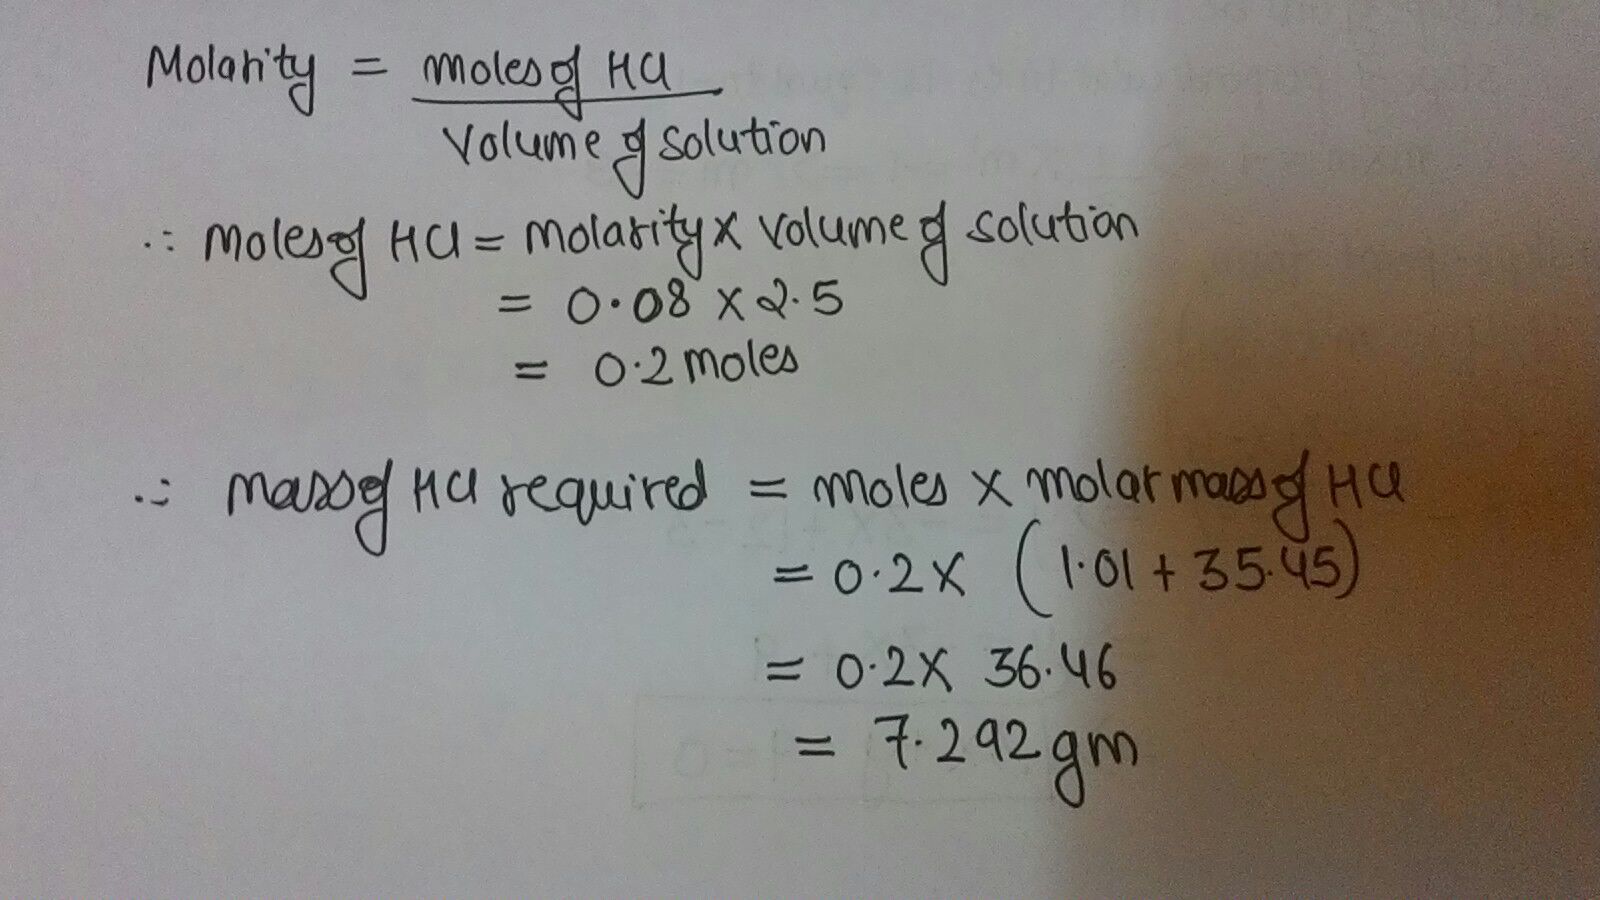 Molarity = moles of HCl
Volume of solution
∴ moles of HCl = molarity x volume of solution
= 0.08 x 2.5
= 0.2 moles
∴ mass of HCl required = moles x molar mass of HCl
= 0.2 x (1.01 + 35.45)
= 0.2 x 36.46
= 7.292 gm